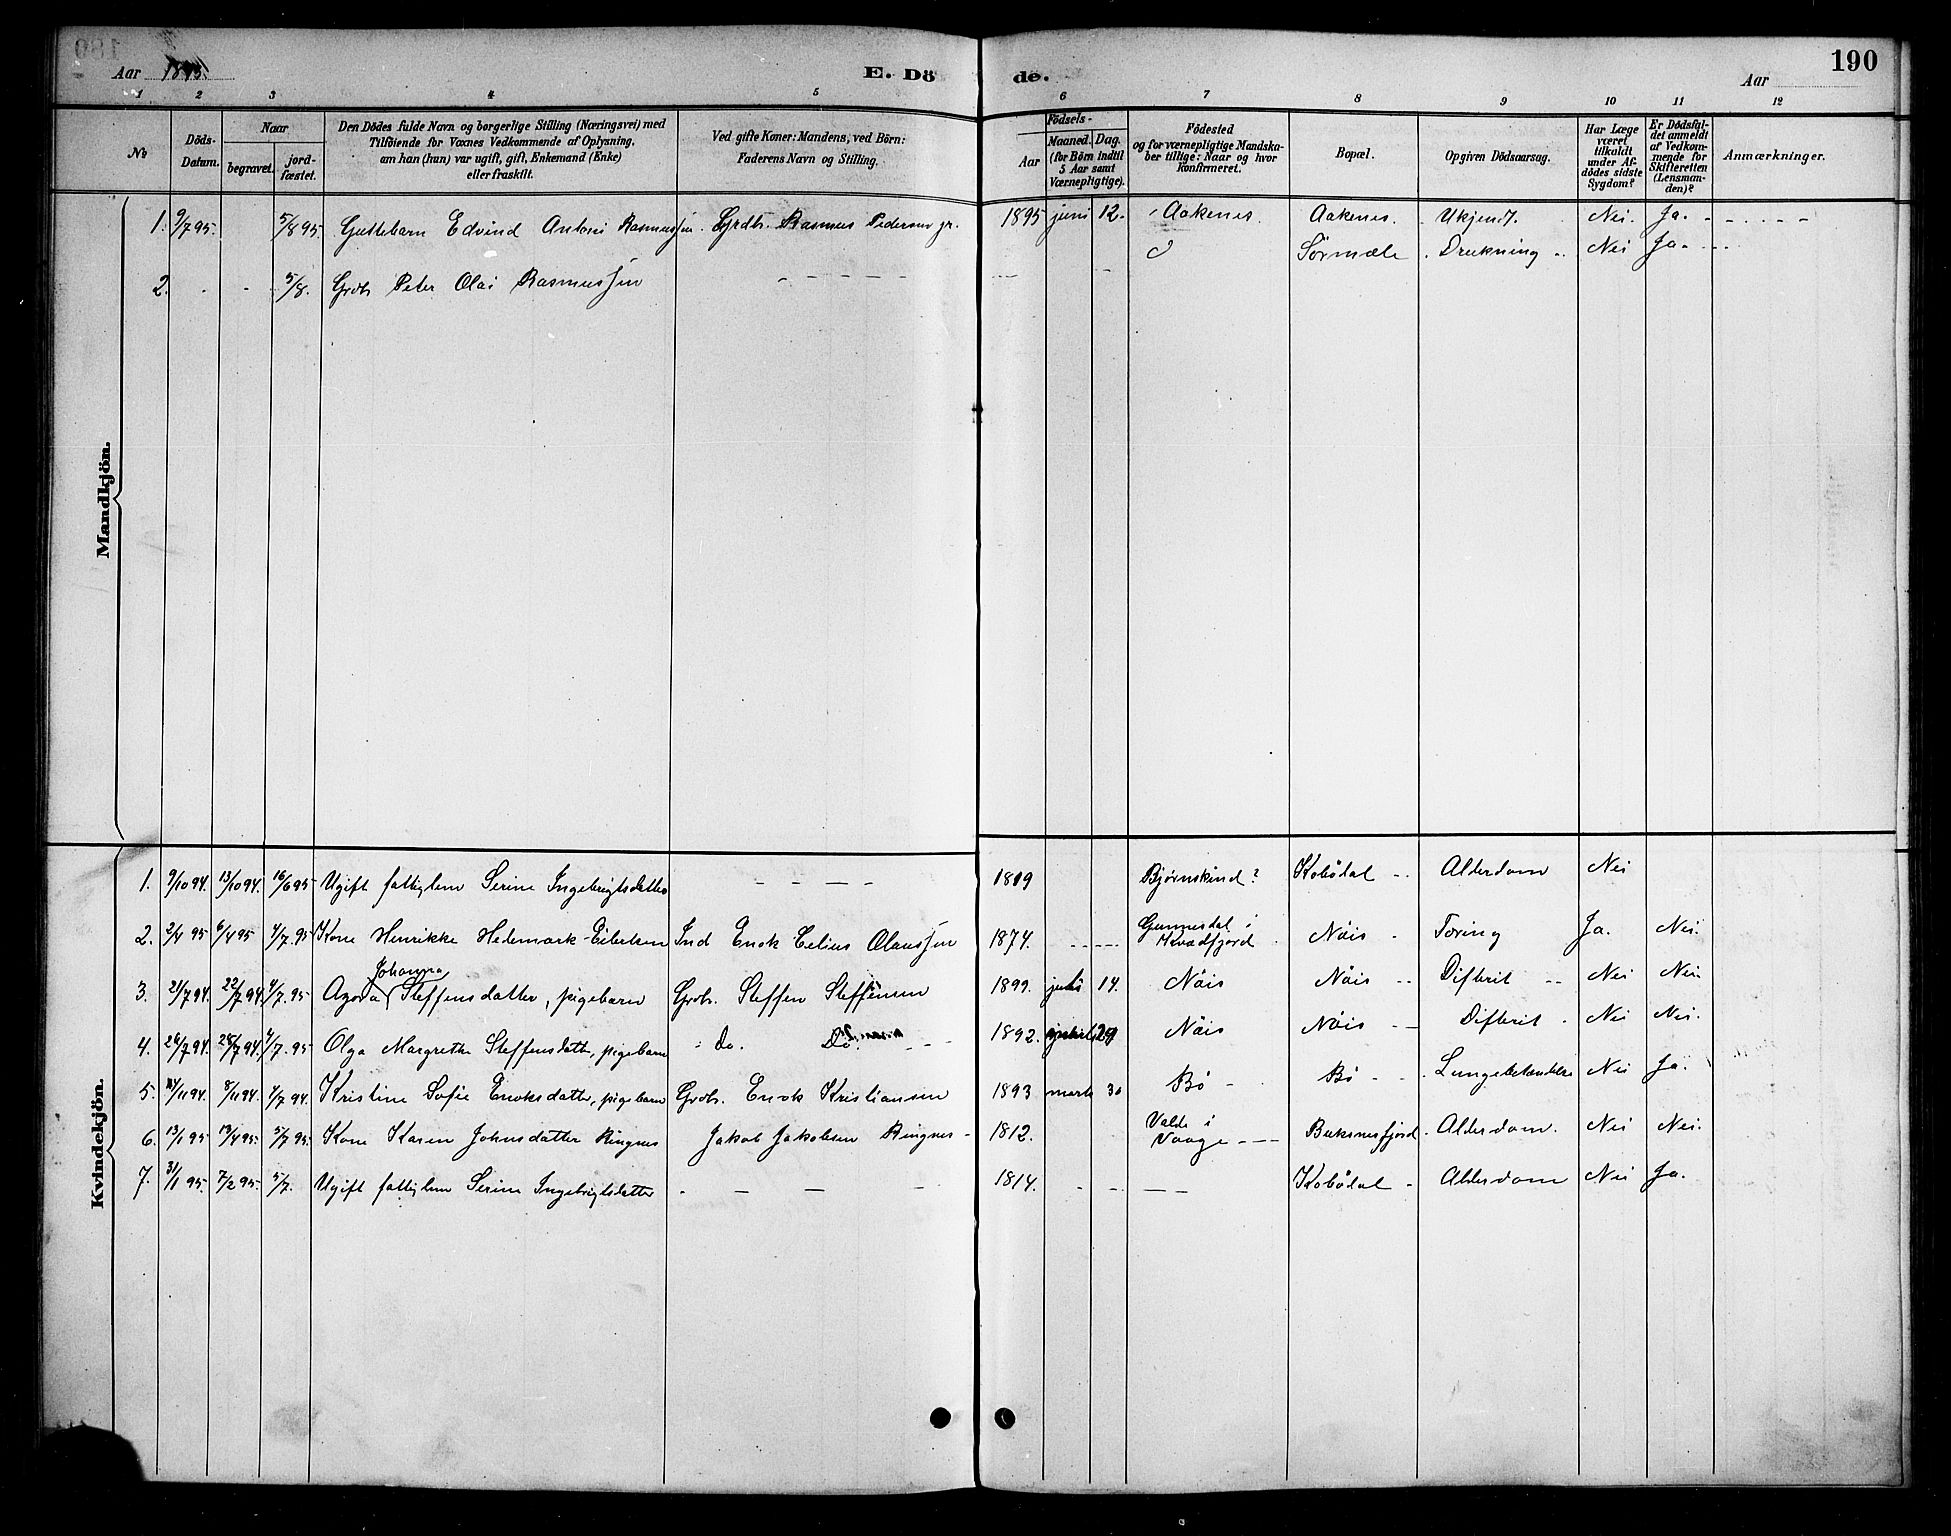 Aar 1895. E. Dö
1 2 3 4 5
Nº
Döds-
Datum.
Naar
begravet.
jord-
fæstet.
Den Dödes fulde Navn og borgerlige Stilling (Næringsvei) med
Tilföiende for Voxnes Vedkommende af Oplysning,
om han (hun) var ugift, gift, Enkemand (Enke)
eller fraskilt.
Ved gifte Koner: Mandens, ved Börn:
Faderens Navn og Stilling.
de. Aar 190
6 7 8 9 10 11 12
Födsels-
Aar
Maaned. Dag.
(for Börn indtil
5 Aar samt
Værnepligtige).
Födested
og for værnepligtige Mandska-
ber tillige: Naar og hvor
konfirmeret.
Bopæl.
Opgiven Dödsaarsag.
Har Læge
været
tilkaldt
under Af-
dödes sidste
Sygdom?
Er Dödsfal-
det anmeldt
af Vedkom-
mende for
Skifteretten
(Lensman-
den)?
Anmærkninger.
Mandkjön.
1. 9/7 95. 5/8 95. Guttebarn Edvind Antoni Rasmussen. Grdbr. Rasmus Pedersen gr. 1895 juni 12. Aakenes. Aakenes. Ukjendt. Nei. Ja. - - - - -
2. - - 5/8. Grdb. Peter Olai Rasmussen - - - - - Sörmæle. Drukning .. Nei Ja. - - -
Kvindekjön.
1. 9/10 94. 13/10 94. 16/6 95 Ugift fattiglem Serine Ingebrigtsdatter - - - - 1819 Bjørnskind? Kobödal -- Alderdom Nei
2. 2/4 95 6/4 95 4/7. 95 Kone Henrikke Hedemark Eilertsen Ind Enok Celius Olaussen 1874. - - - - Gunnesdal i
Kvædfjord Nöis - Tæring Ja. Nei.
Johanna
3. 21/7 94. 22/7 94. 4/7. 95 Agoda Steffensdatter, pigebarn Grdb. Steffen Steffensen 1899. juli 14. Nöis Nöis -- Difterit -- Nei Nei
4. 26/7 94. 28/7 94. 4/7. 95 Olga Margrethe Steffensdatter, pigebarn Do. Do. - - - 1892. 29 Nöis Nöis -- Difterit. Nei Nei.
5. 4/11 94. 8/11 94. 4/7 94. Kristine Sofie Enoksdatter, pigebarn Grdb. Enok Kristiansen 1893 marts 30 Bö - Bö - - Lungebetændelse Nei Ja.
6. 13/1 95 19/4 95. 5/7 95. Kone Karen Johnsdatter Ringnes Jakob Jakobsen Ringnes - 1812. Valde i
Vaage - - - Buksnesfjord. Alderdom. Nei Nei.
7. 31/1 95. 7/2 95. 5/7. Ugift fattiglem Serine Ingebrigtsdatter - - - - 1814. - - - - Kobödal - Alderdom Nei Ja.